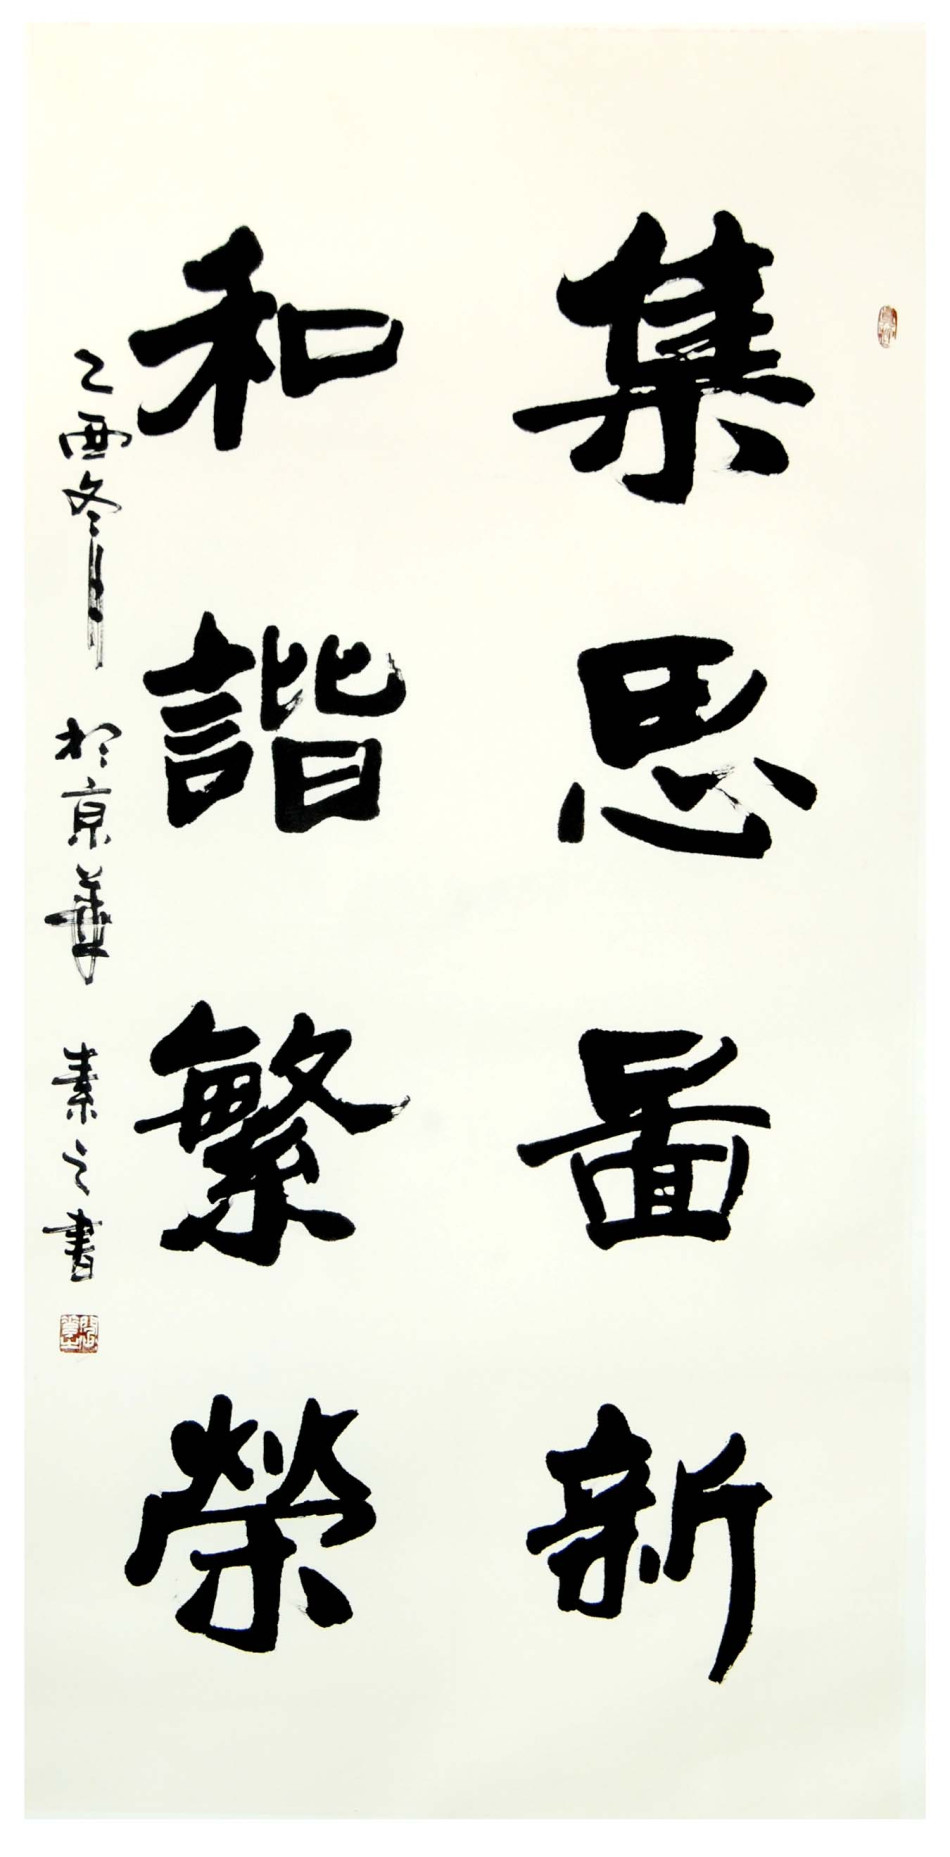 集思圖新
和諧繁榮
乙酉冬月於京華素之書